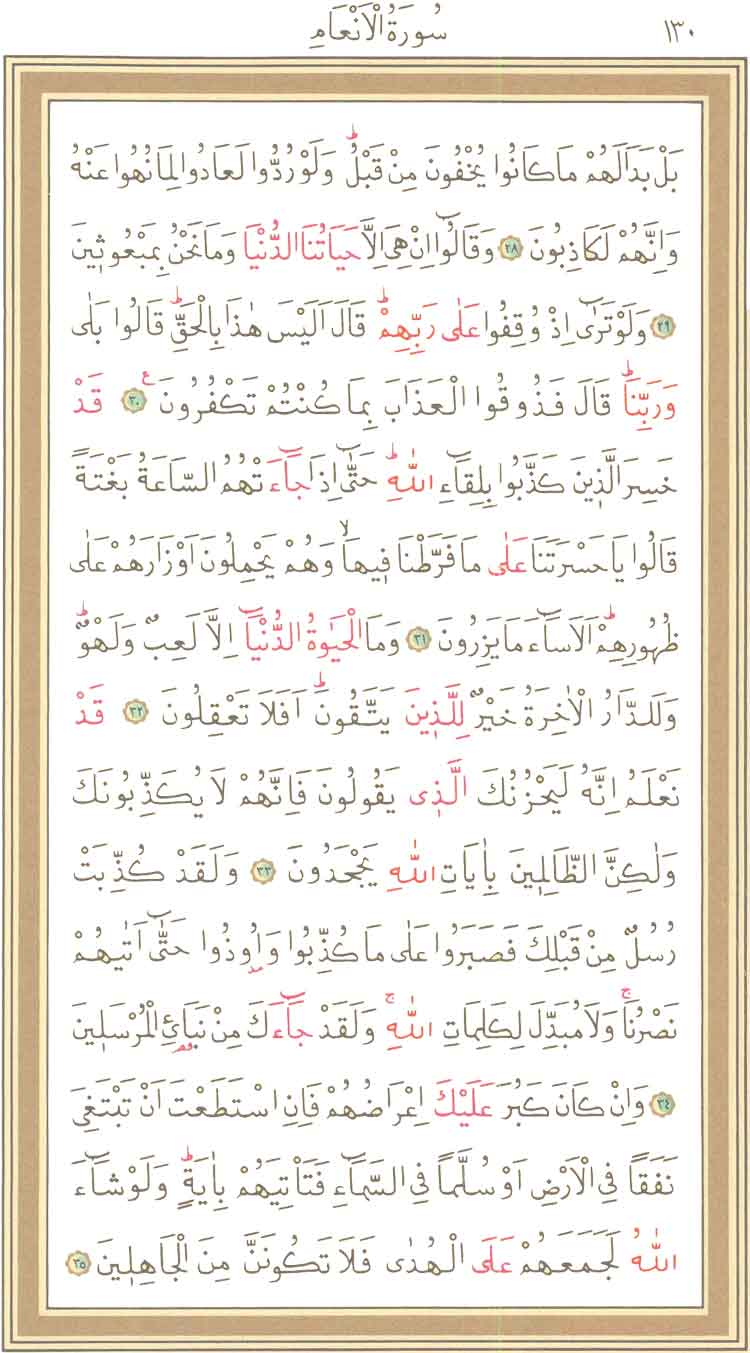 ١٣٠ سُورَةُ الْاَنْعَامِ
بَلْ بَدَا لَهُمْ مَا كَانُوا يُخْفُونَ مِنْ قَبْلُۜ وَلَوْ رُدُّوا لَعَادُوا لِمَا نُهُوا عَنْهُ
وَاِنَّهُمْ لَكَاذِبُونَ ﴿٢٨﴾ وَقَالُٓوا اِنْ هِيَ اِلَّا حَيَاتُنَا الدُّنْيَا وَمَا نَحْنُ بِمَبْعُوث۪ينَ
﴿٢٩﴾ وَلَوْ تَرٰٓى اِذْ وُقِفُوا عَلٰى رَبِّهِمْۜ قَالَ اَلَيْسَ هٰذَا بِالْحَقِّۜ قَالُوا بَلٰى
وَرَبِّنَاۜ قَالَ فَذُوقُوا الْعَذَابَ بِمَا كُنْتُمْ تَكْفُرُونَ ﴿٣٠﴾ ع قَدْ
خَسِرَ الَّذ۪ينَ كَذَّبُوا بِلِقَٓاءِ اللّٰهِۜ حَتّٰٓى اِذَا جَٓاءَتْهُمُ السَّاعَةُ بَغْتَةً
قَالُوا يَا حَسْرَتَنَا عَلٰى مَا فَرَّطْنَا ف۪يهَاۙ وَهُمْ يَحْمِلُونَ اَوْزَارَهُمْ عَلٰى
ظُهُورِهِمْۜ اَلَا سَٓاءَ مَا يَزِرُونَ ﴿٣١﴾ وَمَا الْحَيٰوةُ الدُّنْيَٓا اِلَّا لَعِبٌ وَلَهْوٌۜ
وَلَلدَّارُ الْاٰخِرَةُ خَيْرٌ لِلَّذ۪ينَ يَتَّقُونَۜ اَفَلَا تَعْقِلُونَ ﴿٣٢﴾ قَدْ
نَعْلَمُ اِنَّهُ لَيَحْزُنُكَ الَّذ۪ي يَقُولُونَ فَاِنَّهُمْ لَا يُكَذِّبُونَكَ
وَلٰكِنَّ الظَّالِم۪ينَ بِاٰيَاتِ اللّٰهِ يَجْحَدُونَ ﴿٣٣﴾ وَلَقَدْ كُذِّبَتْ
رُسُلٌ مِنْ قَبْلِكَ فَصَبَرُوا عَلٰى مَا كُذِّبُوا وَاُو۫ذُوا حَتّٰٓى اَتٰيهُمْ
نَصْرُنَاۚ وَلَا مُبَدِّلَ لِكَلِمَاتِ اللّٰهِۚ وَلَقَدْ جَٓاءَكَ مِنْ نَبَا۬ئِ الْمُرْسَل۪ينَ
﴿٣٤﴾ وَاِنْ كَانَ كَبُرَ عَلَيْكَ اِعْرَاضُهُمْ فَاِنِ اسْتَطَعْتَ اَنْ تَبْتَغِيَ
نَفَقًا فِي الْاَرْضِ اَوْ سُلَّمًا فِي السَّمَٓاءِ فَتَاْتِيَهُمْ بِاٰيَةٍۜ وَلَوْ شَٓاءَ
اللّٰهُ لَجَمَعَهُمْ عَلَى الْهُدٰى فَلَا تَكُونَنَّ مِنَ الْجَاهِل۪ينَ ﴿٣٥﴾